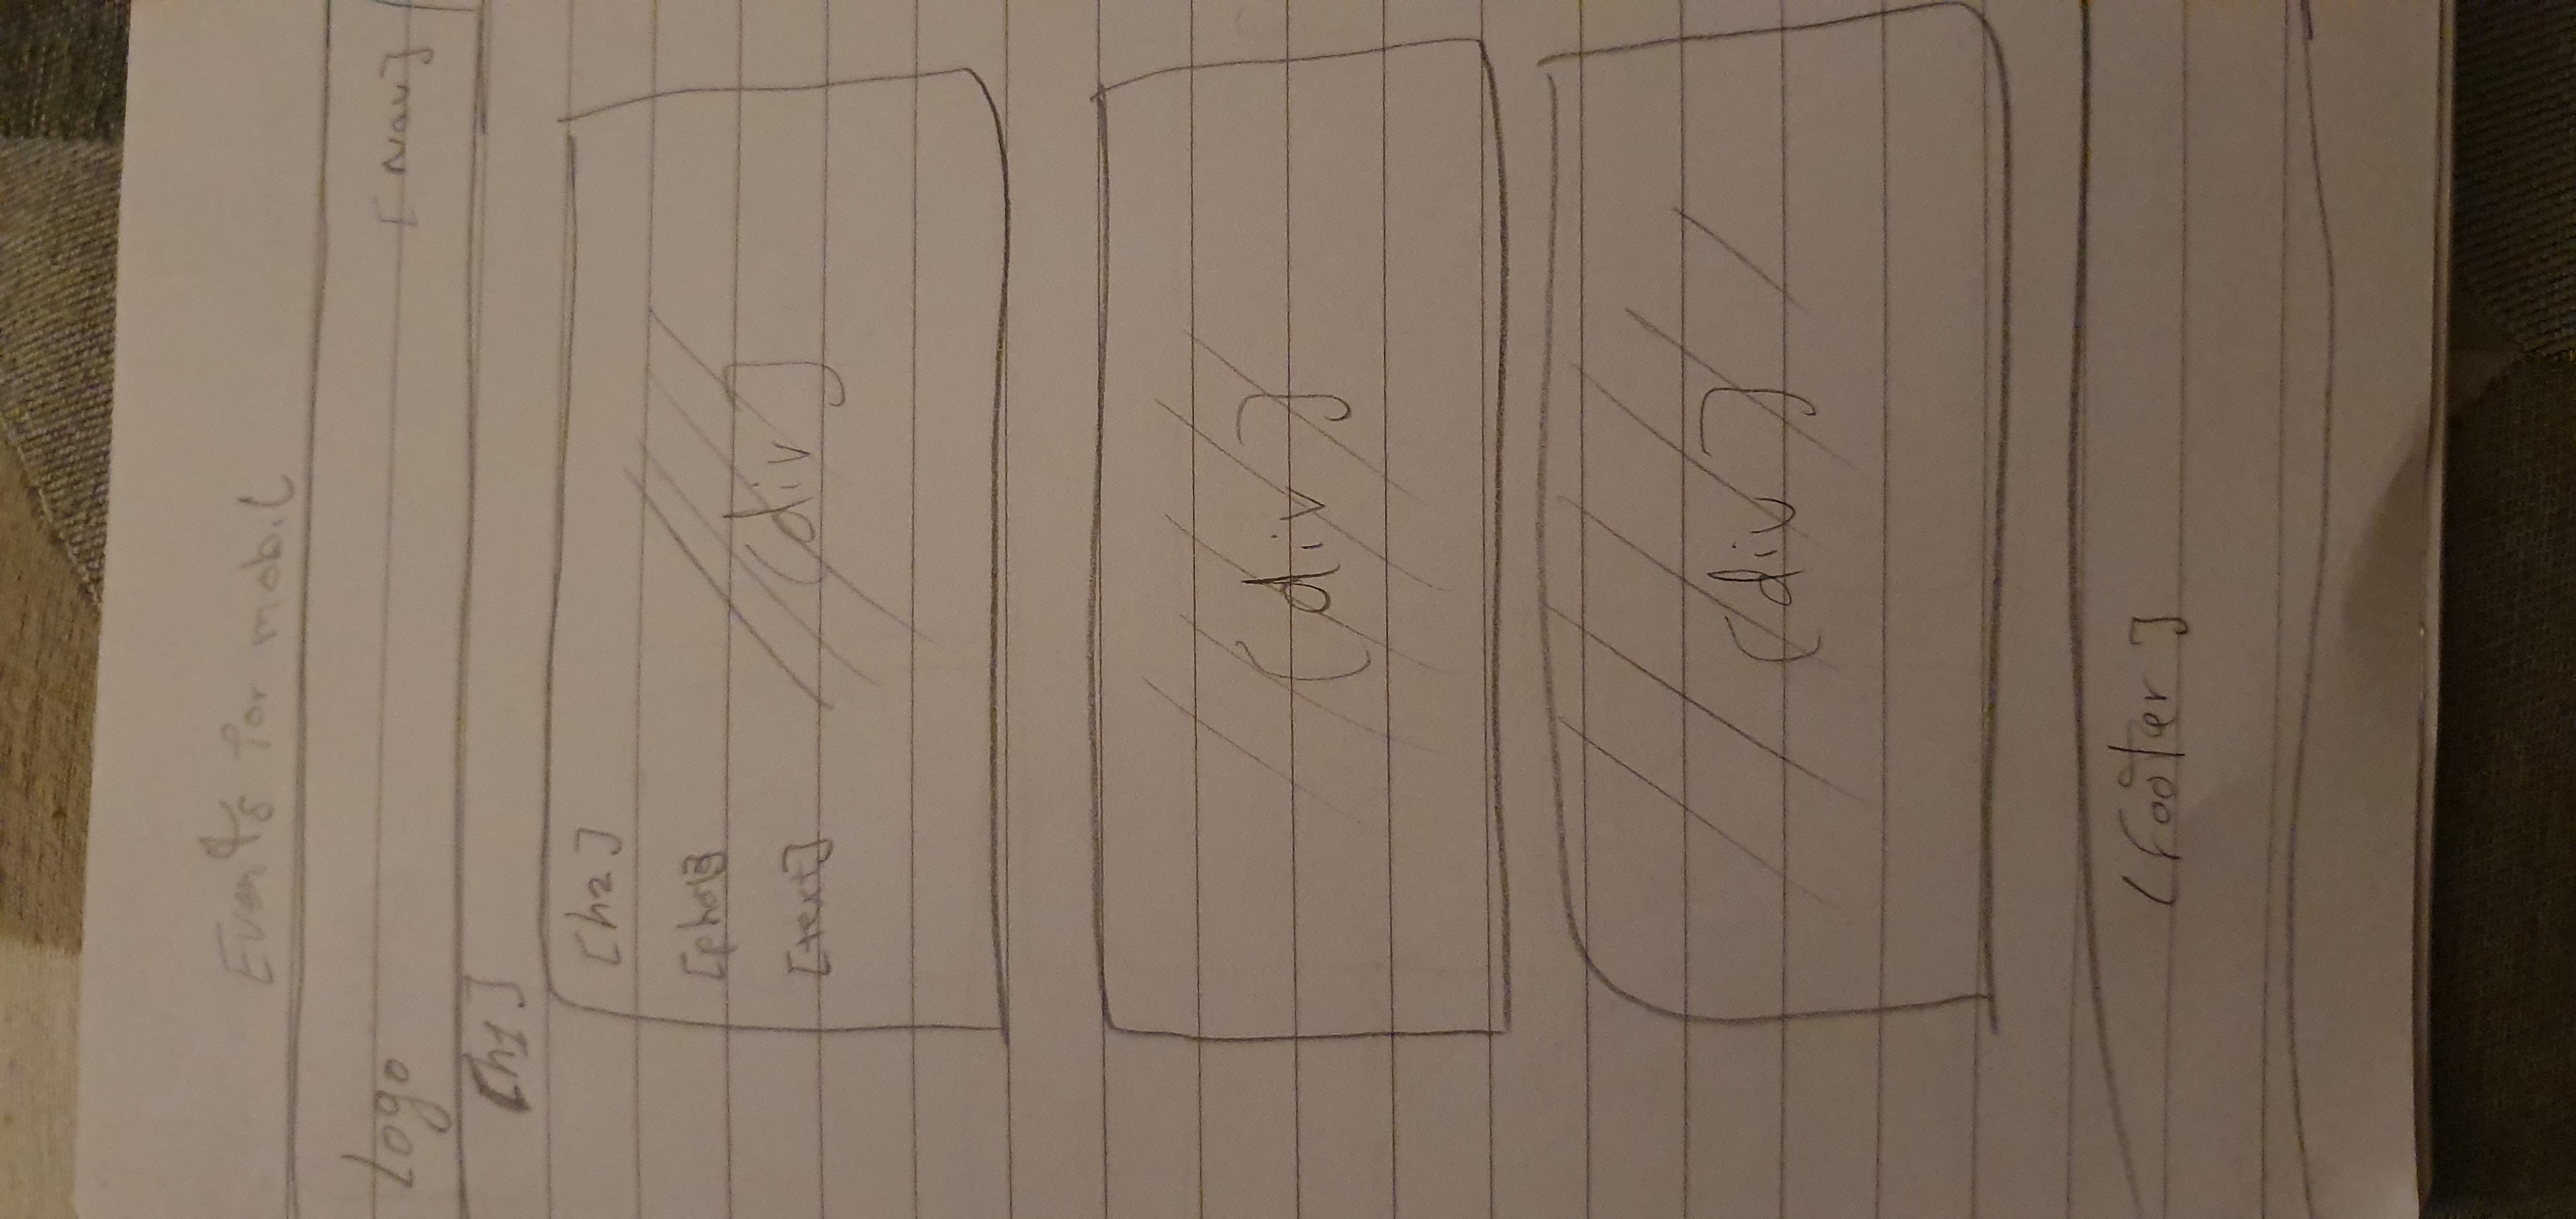 Events for mobil
Logo [Nav]
[h1]
[h2]
[text]
(div]
(div]
(div]
(Footer]